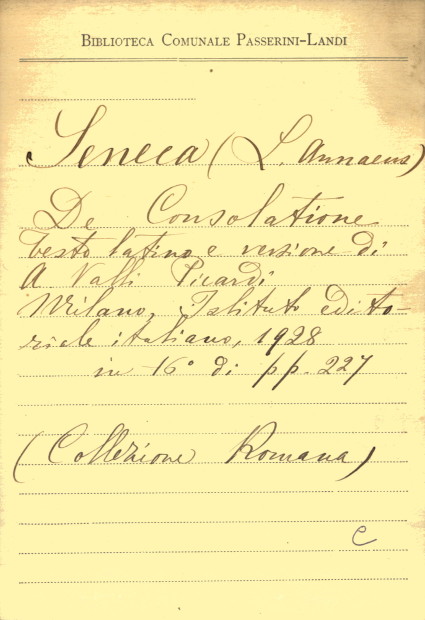 BIBLIOTECA COMUNALE PASSERINI-LANDI
Seneca (L. Annaeus)
De Consolatione
testo latino e versione di
A. Valli Picardi
Milano, Istituto edito-
riale italiano, 1928
in 16° di pp. 227
(Collezione Romana)
C